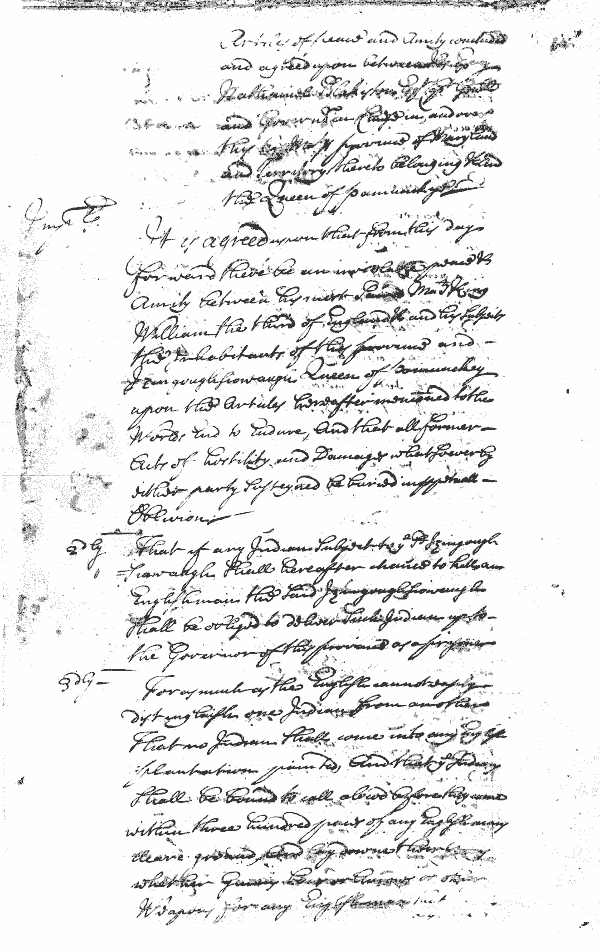 Articles of peace and Amity concluded
and agreed upon between
Nathaniel Blakiston Esqr
and Governour in Cheife in and over
this his Majts province of Maryland
and Territory thereto belonging And
the Queen of
It is agreed upon that from this day
forward there be an inviolable peace &
Amity between his most Sacred Maty King
William the third of England &c and his subjects
the Inhabitants of this province and
Queen of
upon the Articles hereafter menconed to the
Worlds End to Endure, And that all former
Acts of hostility and Damages whatsoever by
either party susteyned be buried in perpetuall
Oblivion
2dly That if any Indian Subject to ye sd
shall hereafter chance to kill an
Englishman the said
shall be obliged to deliver such Indian up to
the Governor of this province as a prisoner
3dly Forasmuch as the English cannot easily
distinguish one Indian from another
That no Indian shall come into any English
plantation painted, And that ye Indians
shall be bound to call aloud before they come
within three hundred paces of any Englishmans
cleare ground, And lay downe their
whether Gunns bows or Arrows or other
Weapons for any Englishman